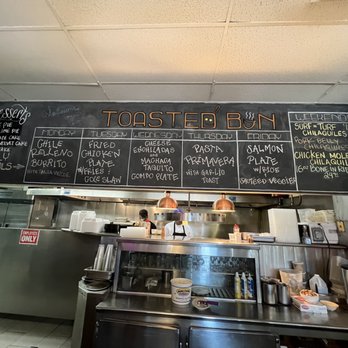 Desserts
TOASTED BUN
MONDAY
CHILE
RELLENO
BURRITO
TUESDAY
FRIED
CHICKEN
PLATE
COLE SLAW
WEDNESDAY
CHEESE
ENCHILADAS
MACHACA
TAQUITO
COMBO PLATE
THURSDAY
PASTA
PRIMAVERA
WITH GARLIC
TOAST
FRIDAY
SALMON
PLATE
W/RICE
WEEKEND
SURF & TURF
CHILAQUILES
PORK BELLY
CHILAQUILES
CHICKEN MOLE
CHILAQUILES
BONE IN RIB
EMPLOYEES
ONLY